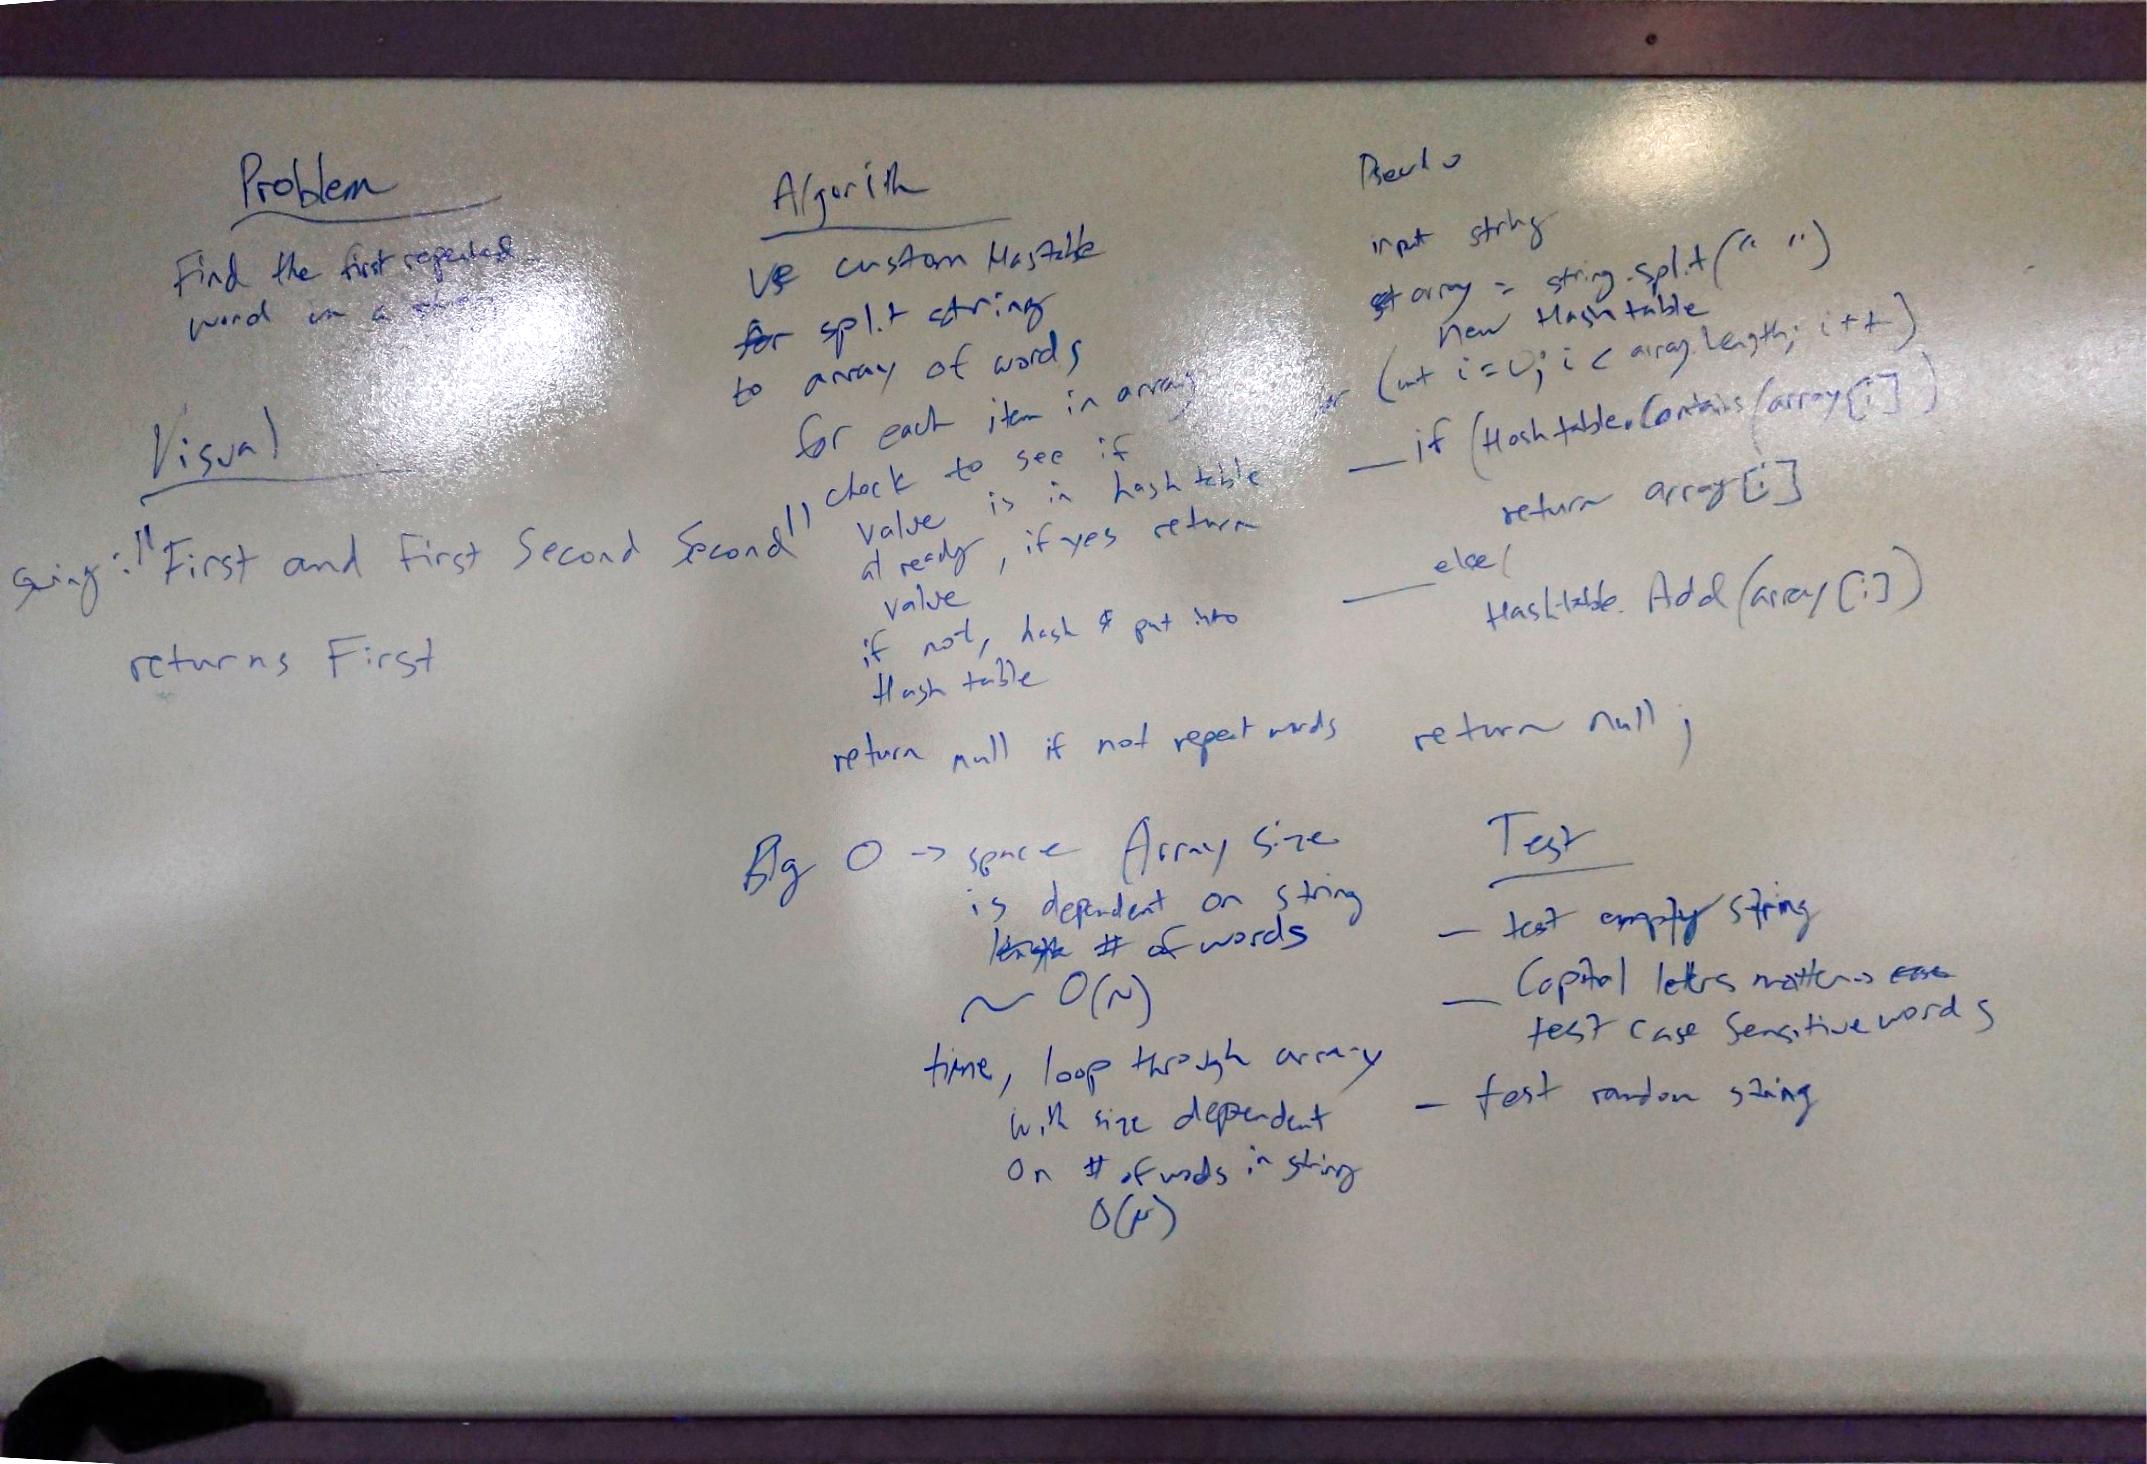 Problem
Find the first repeated
word in a
Visual
String: "First and First Second Second"
returns First
Algorith
Use custom Hastable
for split string
to array of words
for each item in array
check to see if
value is in hash table
already, if yes return
value
if not, hash & put into
Hash table
return null if not repeat words
Big O -> space Array size
is dependent on string
length # of words
~ O(N)
time, loop through array
with size dependent
on # of words in string
O(N)
Pseudo
input string
array = string.split(" ")
new Hashtable
for (int i=0; i < array.length; i++)
if (Hashtable.Contains(array[i])
return array[i]
else(
Hashtable.Add(array[i])
return null;
Test
- test empty string
- Capital letters matters case
test case sensitive words
- test random string